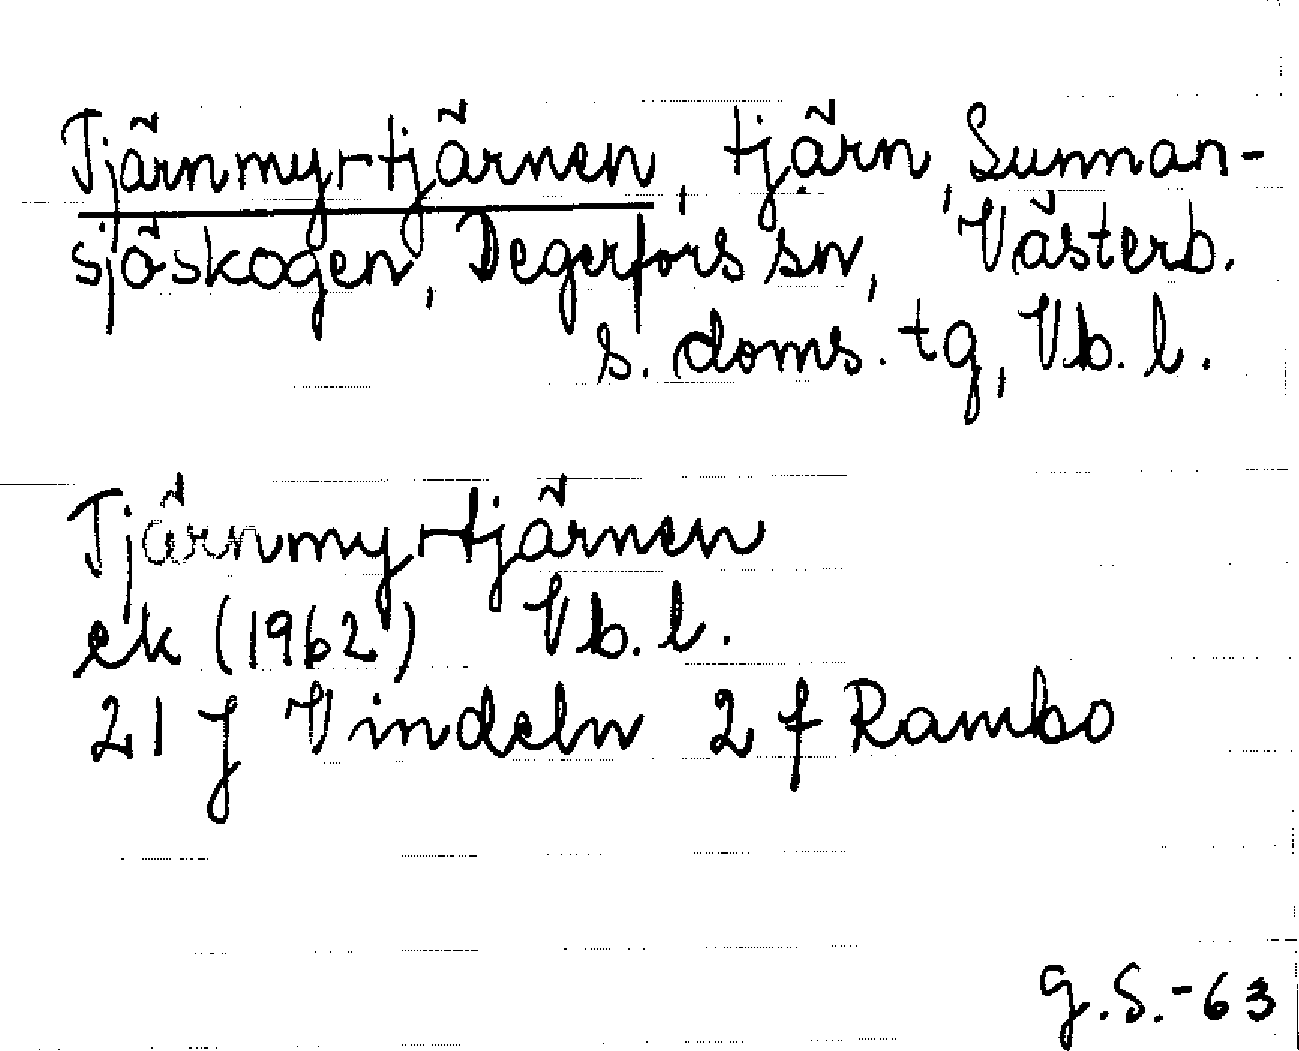 Tjärnmyrtjärnen, tjärn, Sunnan-
sjöskogen, Degerfors sn, Västerb.
s. doms. tg, Vb. l.
Tjärnmyrtjärnen
ek (1962) Vb. l.
21 J Vindeln 2 f Rambo
G.S.-63